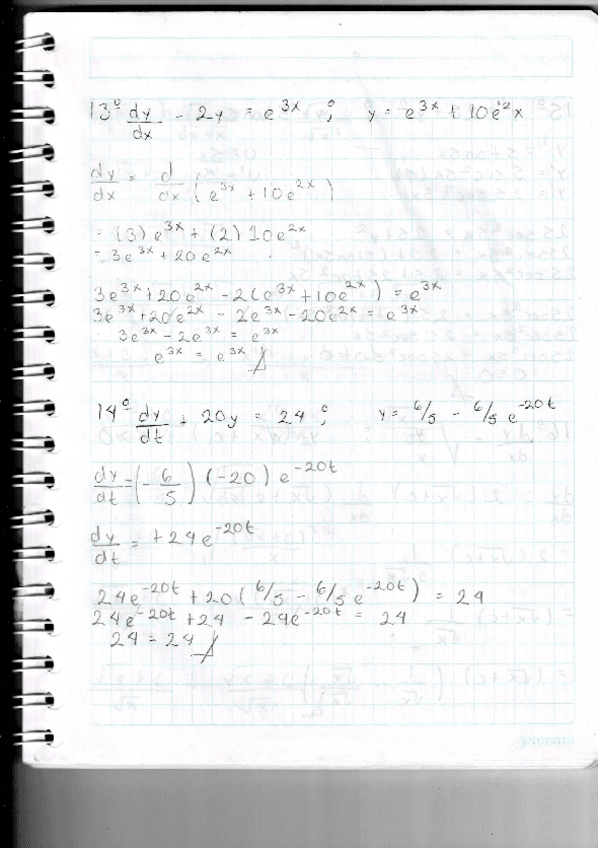 13° dy/dx - 2y = e^3x ; y = e^3x + 10e^2x
dy/dx = d/dx (e^3x + 10e^2x)
= (3) e^3x + (2) 10e^2x
= 3e^3x + 20e^2x
3e^3x + 20e^2x - 2(e^3x + 10e^2x) = e^3x
3e^3x + 20e^2x - 2e^3x - 20e^2x = e^3x
3e^3x - 2e^3x = e^3x
e^3x = e^3x
14° dy/dt + 20y = 24 ; y = 6/5 - 6/5 e^-20t
dy/dt = (-6/5) (-20) e^-20t
dy/dt = +24e^-20t
24e^-20t + 20(6/5 - 6/5 e^-20t) = 24
24e^-20t + 24 - 24e^-20t = 24
24 = 24